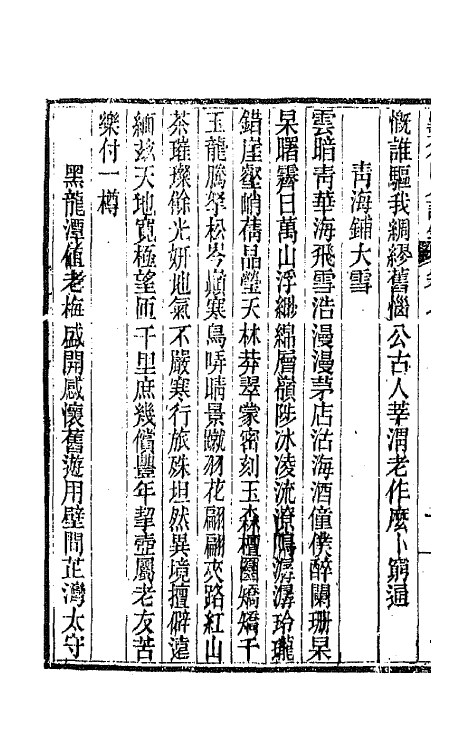 慨誰驅我綢繆舊惱公古人莘渭老作麽卜窮通
青海鋪大雪
雲暗靑華海飛雪浩漫漫茅店沽海酒僮僕醉闌珊杲
杲曙霽日萬山浮緲綿層嶺陟冰凌流澌鳴潺潺玲瓏
錯崖壑峭蒨晶瑩天林莽翠蒙密刻玉森檀圞矯矯千
玉龍騰拏松岑巔寒鳥哢晴景蹴羽花翩翩夾路紅山
茶璀璨餘光妍地氣不嚴寒行旅殊坦然異境擅僻遠
緬茲天地寬極望匝千里庶幾償豐年挈壺屬老友苦
樂付一樽
黑龍潭値老梅盛開感懷舊遊用壁間芷灣太守